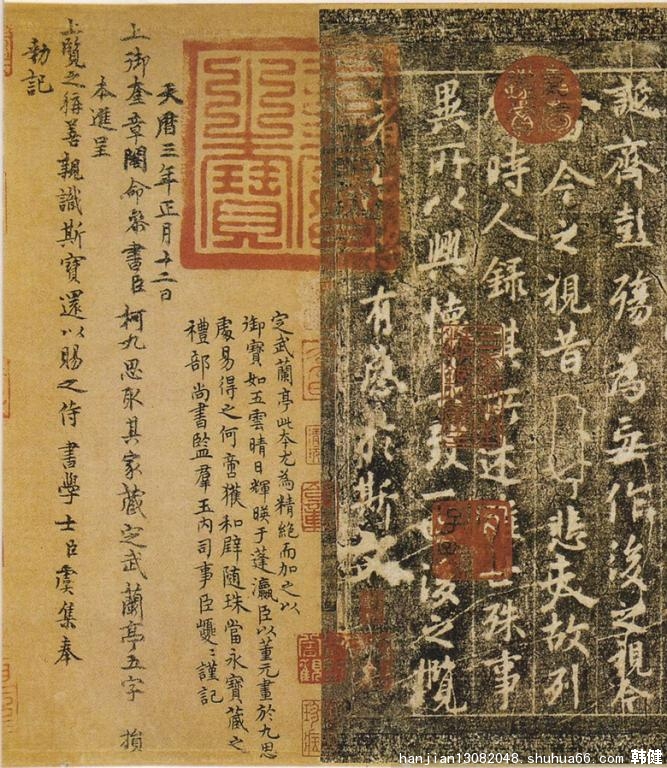 誕齊彭殤為妄作後之視今
今之視昔悲夫故列
時人錄其所述雖世殊事
異所以興懷其致一也後之攬
者
有感於斯文
定武蘭亭此本尤為精絕而加之以
御寶如五雲晴日輝暎于蓬瀛臣以董元畫於九思
處易得之何啻獲和璧随珠當永寶藏之
禮部尚書監羣玉內司事臣巙〻謹記
天曆三年正月十二日
上御奎章閣命參書臣柯九思取其家藏定武蘭亭五字損
本進呈
上覽之稱善親識斯寶還以賜之侍書學士臣虞集奉
勅記
hanjian13082048.shuhua66.com 韩健